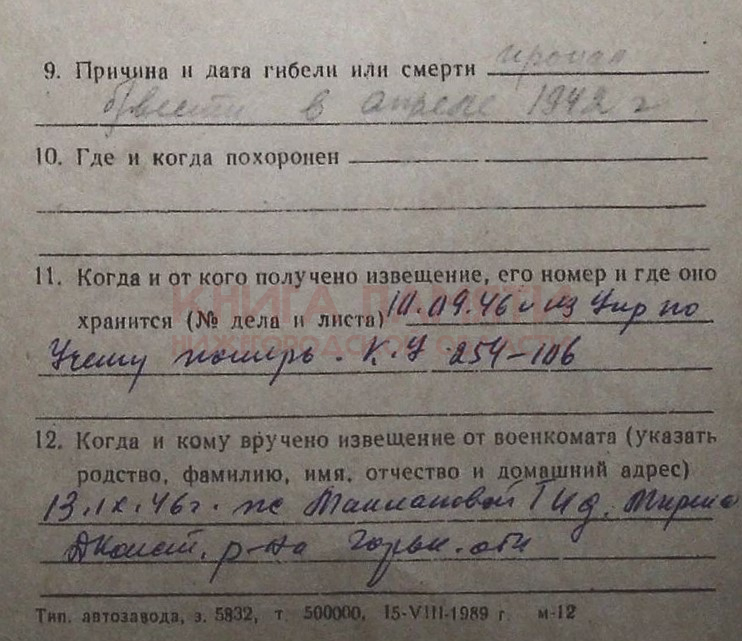 9. Причина и дата гибели или смерти пропал
б/вести в апреле 1942 г
10. Где и когда похоронен
11. Когда и от кого получено извещение, его номер и где оно
хранится (№ дела и листа) 10.09.46 г из Упр по
Учету потерь. К.У 254-106
КНИГА ПАМЯТИ
НИЖЕГОРОДСКОЙ ОБЛАСТИ
12. Когда и кому вручено извещение от военкомата (указать
родство, фамилию, имя, отчество и домашний адрес)
13.IX.46г. же
Дконст. р-на Горьк. обл
Тип. автозавода, з. 5832, т. 500000, 15-VIII-1989 г. м-12